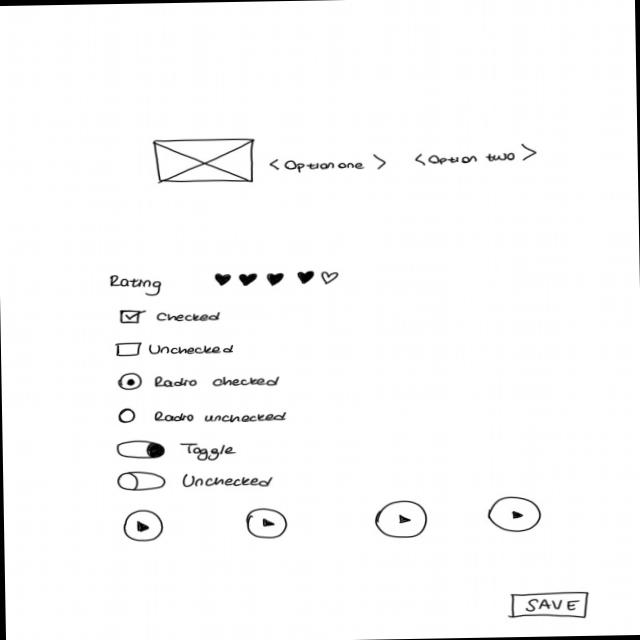 <Option one> <Option two>
Rating
Checked
Unchecked
Radio checked
Radio unchecked
Toggle
Unchecked
SAVE